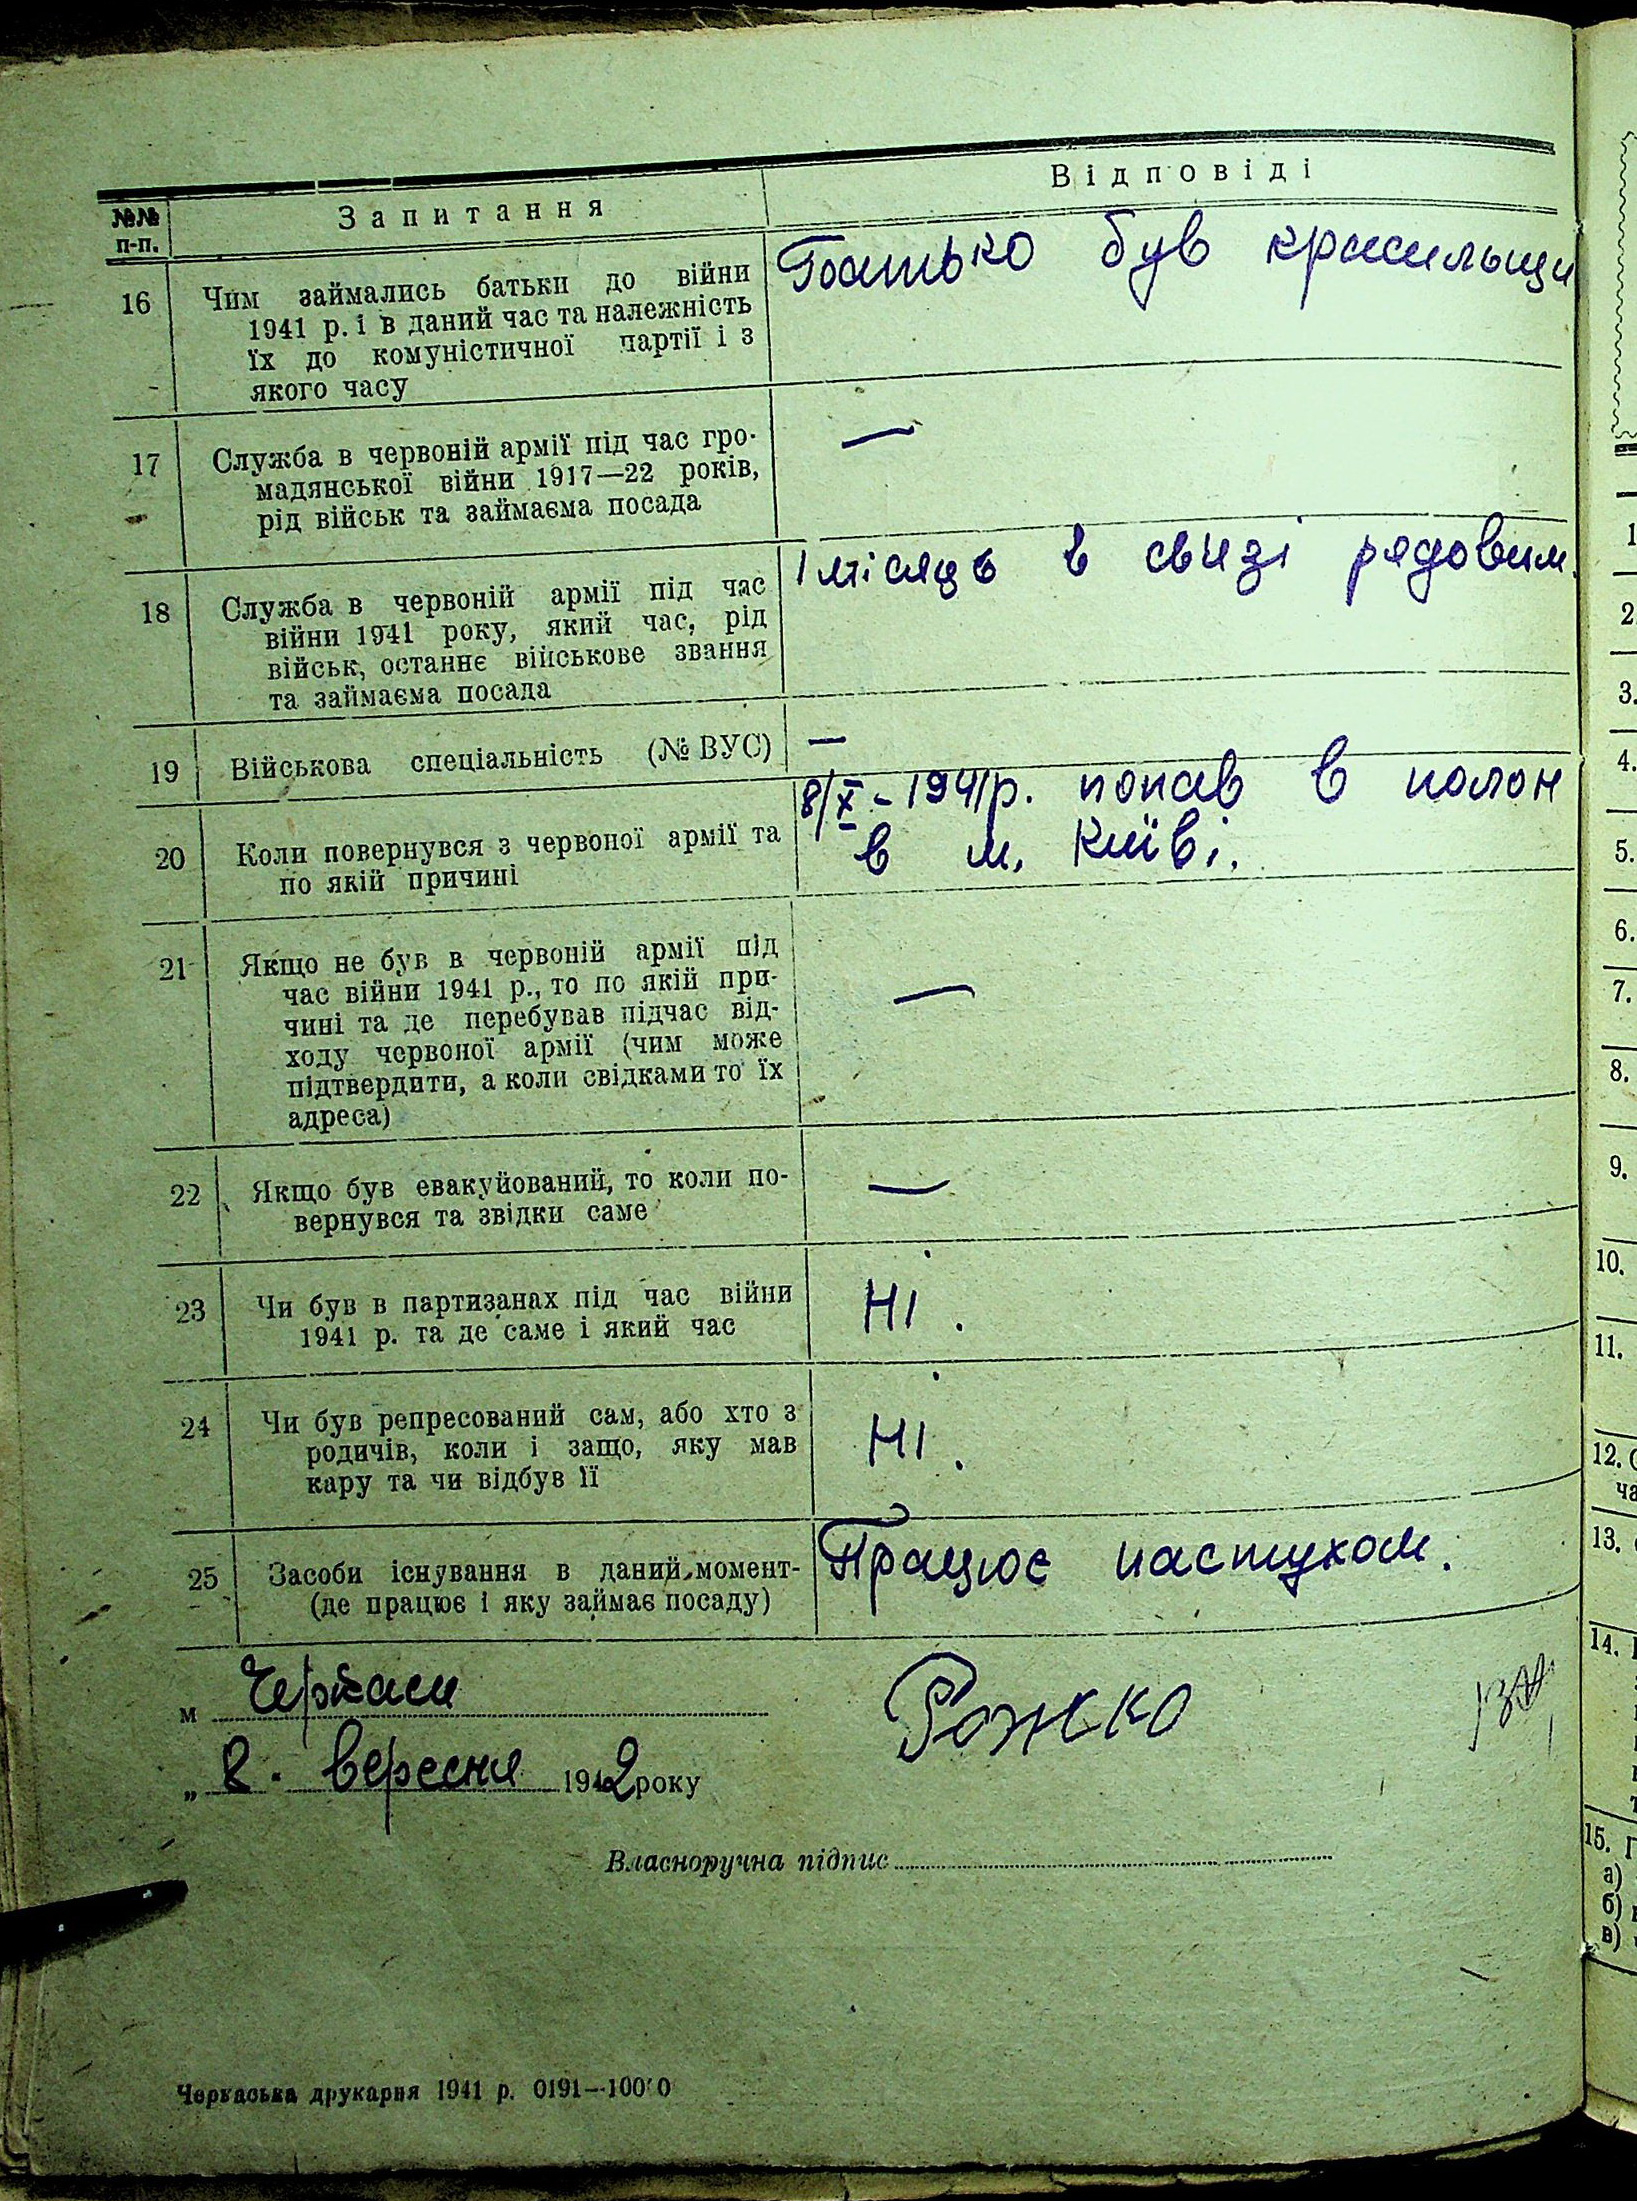 №№ п-п.
Запитання
Відповіді
16
Чим займались батьки до війни
1941 р. і в даний час та належність
їх до комуністичної партії і з
якого часу
Батько був красильщи
17
Служба в червоній армії під час гро-
мадянської війни 1917—22 років,
рід військ та займаєма посада
—
18
Служба в червоній армії під час
війни 1941 року, який час, рід
військ, останнє військове звання
та займаєма посада
1 місяць в свизі рядовим.
19
Військова спеціальність (№ ВУС)
—
20
Коли повернувся з червоної армії та
по якій причині
8/X - 1941 р. попав в полон
в м. Київі.
21
Якщо не був в червоній армії під
час війни 1941 р., то по якій при-
чині та де перебував підчас від-
ходу червоної армії (чим може
підтвердити, а коли свідками то їх
адреса)
—
22
Якщо був евакуйований, то коли по-
вернувся та звідки саме
—
23
Чи був в партизанах під час війни
1941 р. та де саме і який час
Ні.
24
Чи був репресований сам, або хто з
родичів, коли і защо, яку мав
кару та чи відбув її
Ні.
25
Засоби існування в даний момент-
(де працює і яку займає посаду)
Працює пастухом.
м Черкаси
Рожко
„ 8. вересня 1942 року
Власноручна підпис
Черкаська друкарня 1941 р. 0191—100'0
1
2.
3.
4.
5.
6.
7.
8.
9.
10.
11.
12. С
ча
13.
14.
15. Г
а)
б)
в)